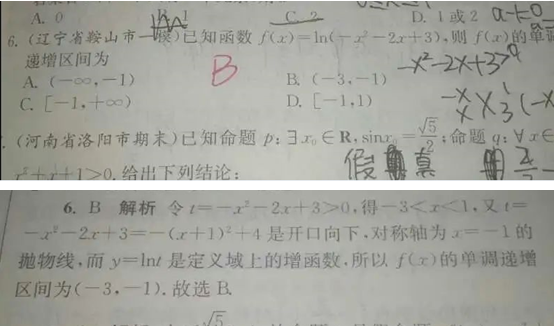 A. 0 B. 1 C. 2 D. 1或2 a-1=0
6. (辽宁省鞍山市一模)已知函数 f(x)=ln(-x²-2x+3),则 f(x)的单调
递增区间为 B -x²-2x+3>0
A. (-∞,-1) B. (-3,-1)
C. [-1,+∞) D. [-1,1)
(河南省洛阳市期末)已知命题 p:∃x₀∈R,sinx₀=√5/2;命题 q:∀x∈
x²+x+1>0.给出下列结论: 假 真
6. B 解析 令 t=-x²-2x+3>0,得-3<x<1,又 t=
-x²-2x+3=-(x+1)²+4 是开口向下,对称轴为 x=-1 的
抛物线,而 y=lnt 是定义域上的增函数,所以 f(x)的单调递增
区间为(-3,-1).故选 B.
√5